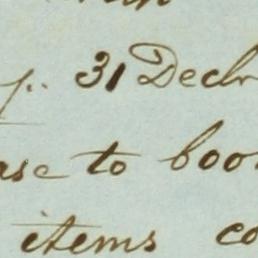 31 Decbr
ase to boo
items co